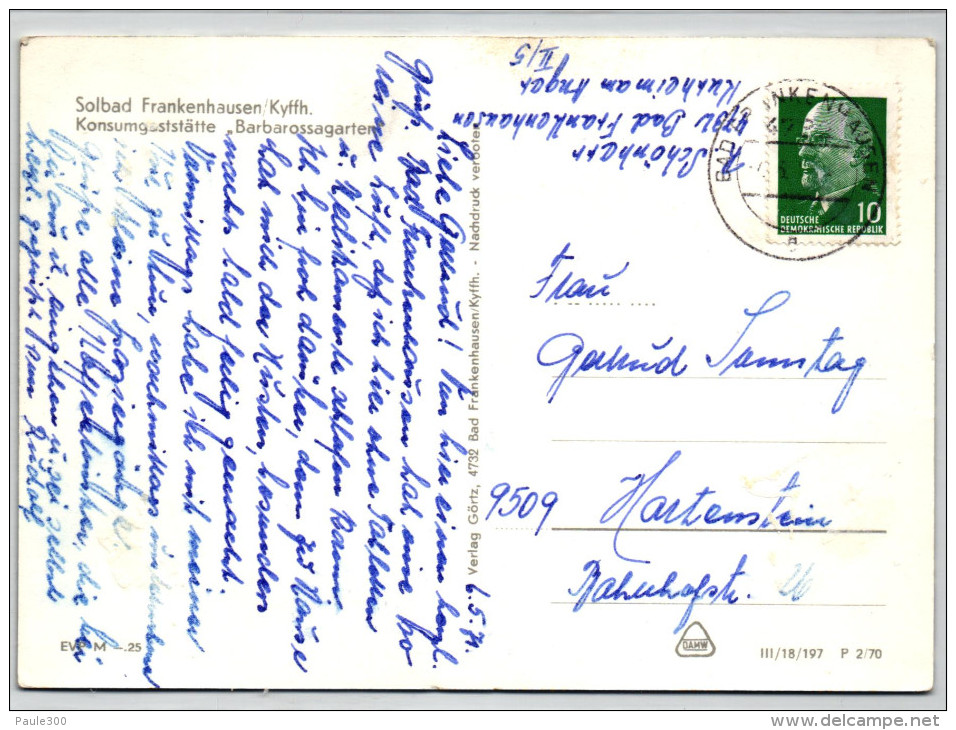 Solbad Frankenhausen/Kyffh.
Konsumgaststätte „Barbarossagarten"
Schönherr
4732 Bad Frankenhausen
Kurheim am Anger
II/5
BAD FRANKENHAUSEN
10
DEUTSCHE
DEMOKRATISCHE REPUBLIK
Frau
Gertrud Sonntag
9509 Hartenstein
Bahnhofstr.
6.5.71.
Liebe Gertrud! Von hier einen herzl.
Gruß. Bad Frankenhausen hat eine
Luft, daß ich hier ohne Tabletten
u. Medikamente schlafen kann.
Ich bin froh darüber, denn zu Hause
hat mich der Husten, besonders
nachts bald fertig gemacht.
Vormittags habe ich mit meiner
zu tun, nachmittags
kleine Spaziergänge.
Grüße alle
herzl. gegrüßt von Rudolf
Verlag Görtz, 4732 Bad Frankenhausen/Kyffh. - Nachdruck verboten
EVP M -.25
DAMW
III/18/197 P 2/70
Paule300
delcampe.net